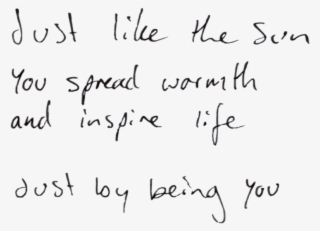 Just like the sun
You spread warmth
and inspire life
Just by being you